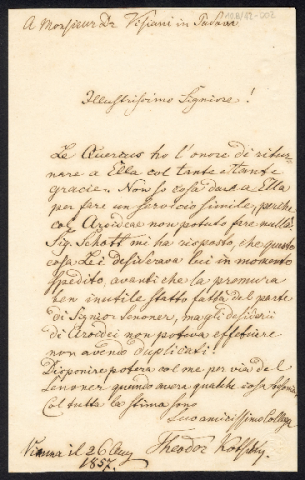 A Monsieur Dr Visiani in Padova
Illustrissimo Signiore!
Le Quercus ho l'onore di ritur-
nare a Ella col tante e tante
gracie. Non so cosa dare a Ella
per fare un servicio simile, perche
col Aroideae non potuto fare nulla.
Sig. Schott mi ha risposto, che questo
cosa Lei desiderava lui in momento
spedito, avanti che la premura
ben inutile statto fatta del parte
di Signor Senoner, ma gli desiderii
di Aroidei non poteva effetuire
non avendo duplicati!
Disponire potera col me per via del
Senoner quando avera qualche cosa
Col tutta la stima sono
Suo amicissimo Collega
Theodor Kotschy
Vienna il 26 Aug
1857.